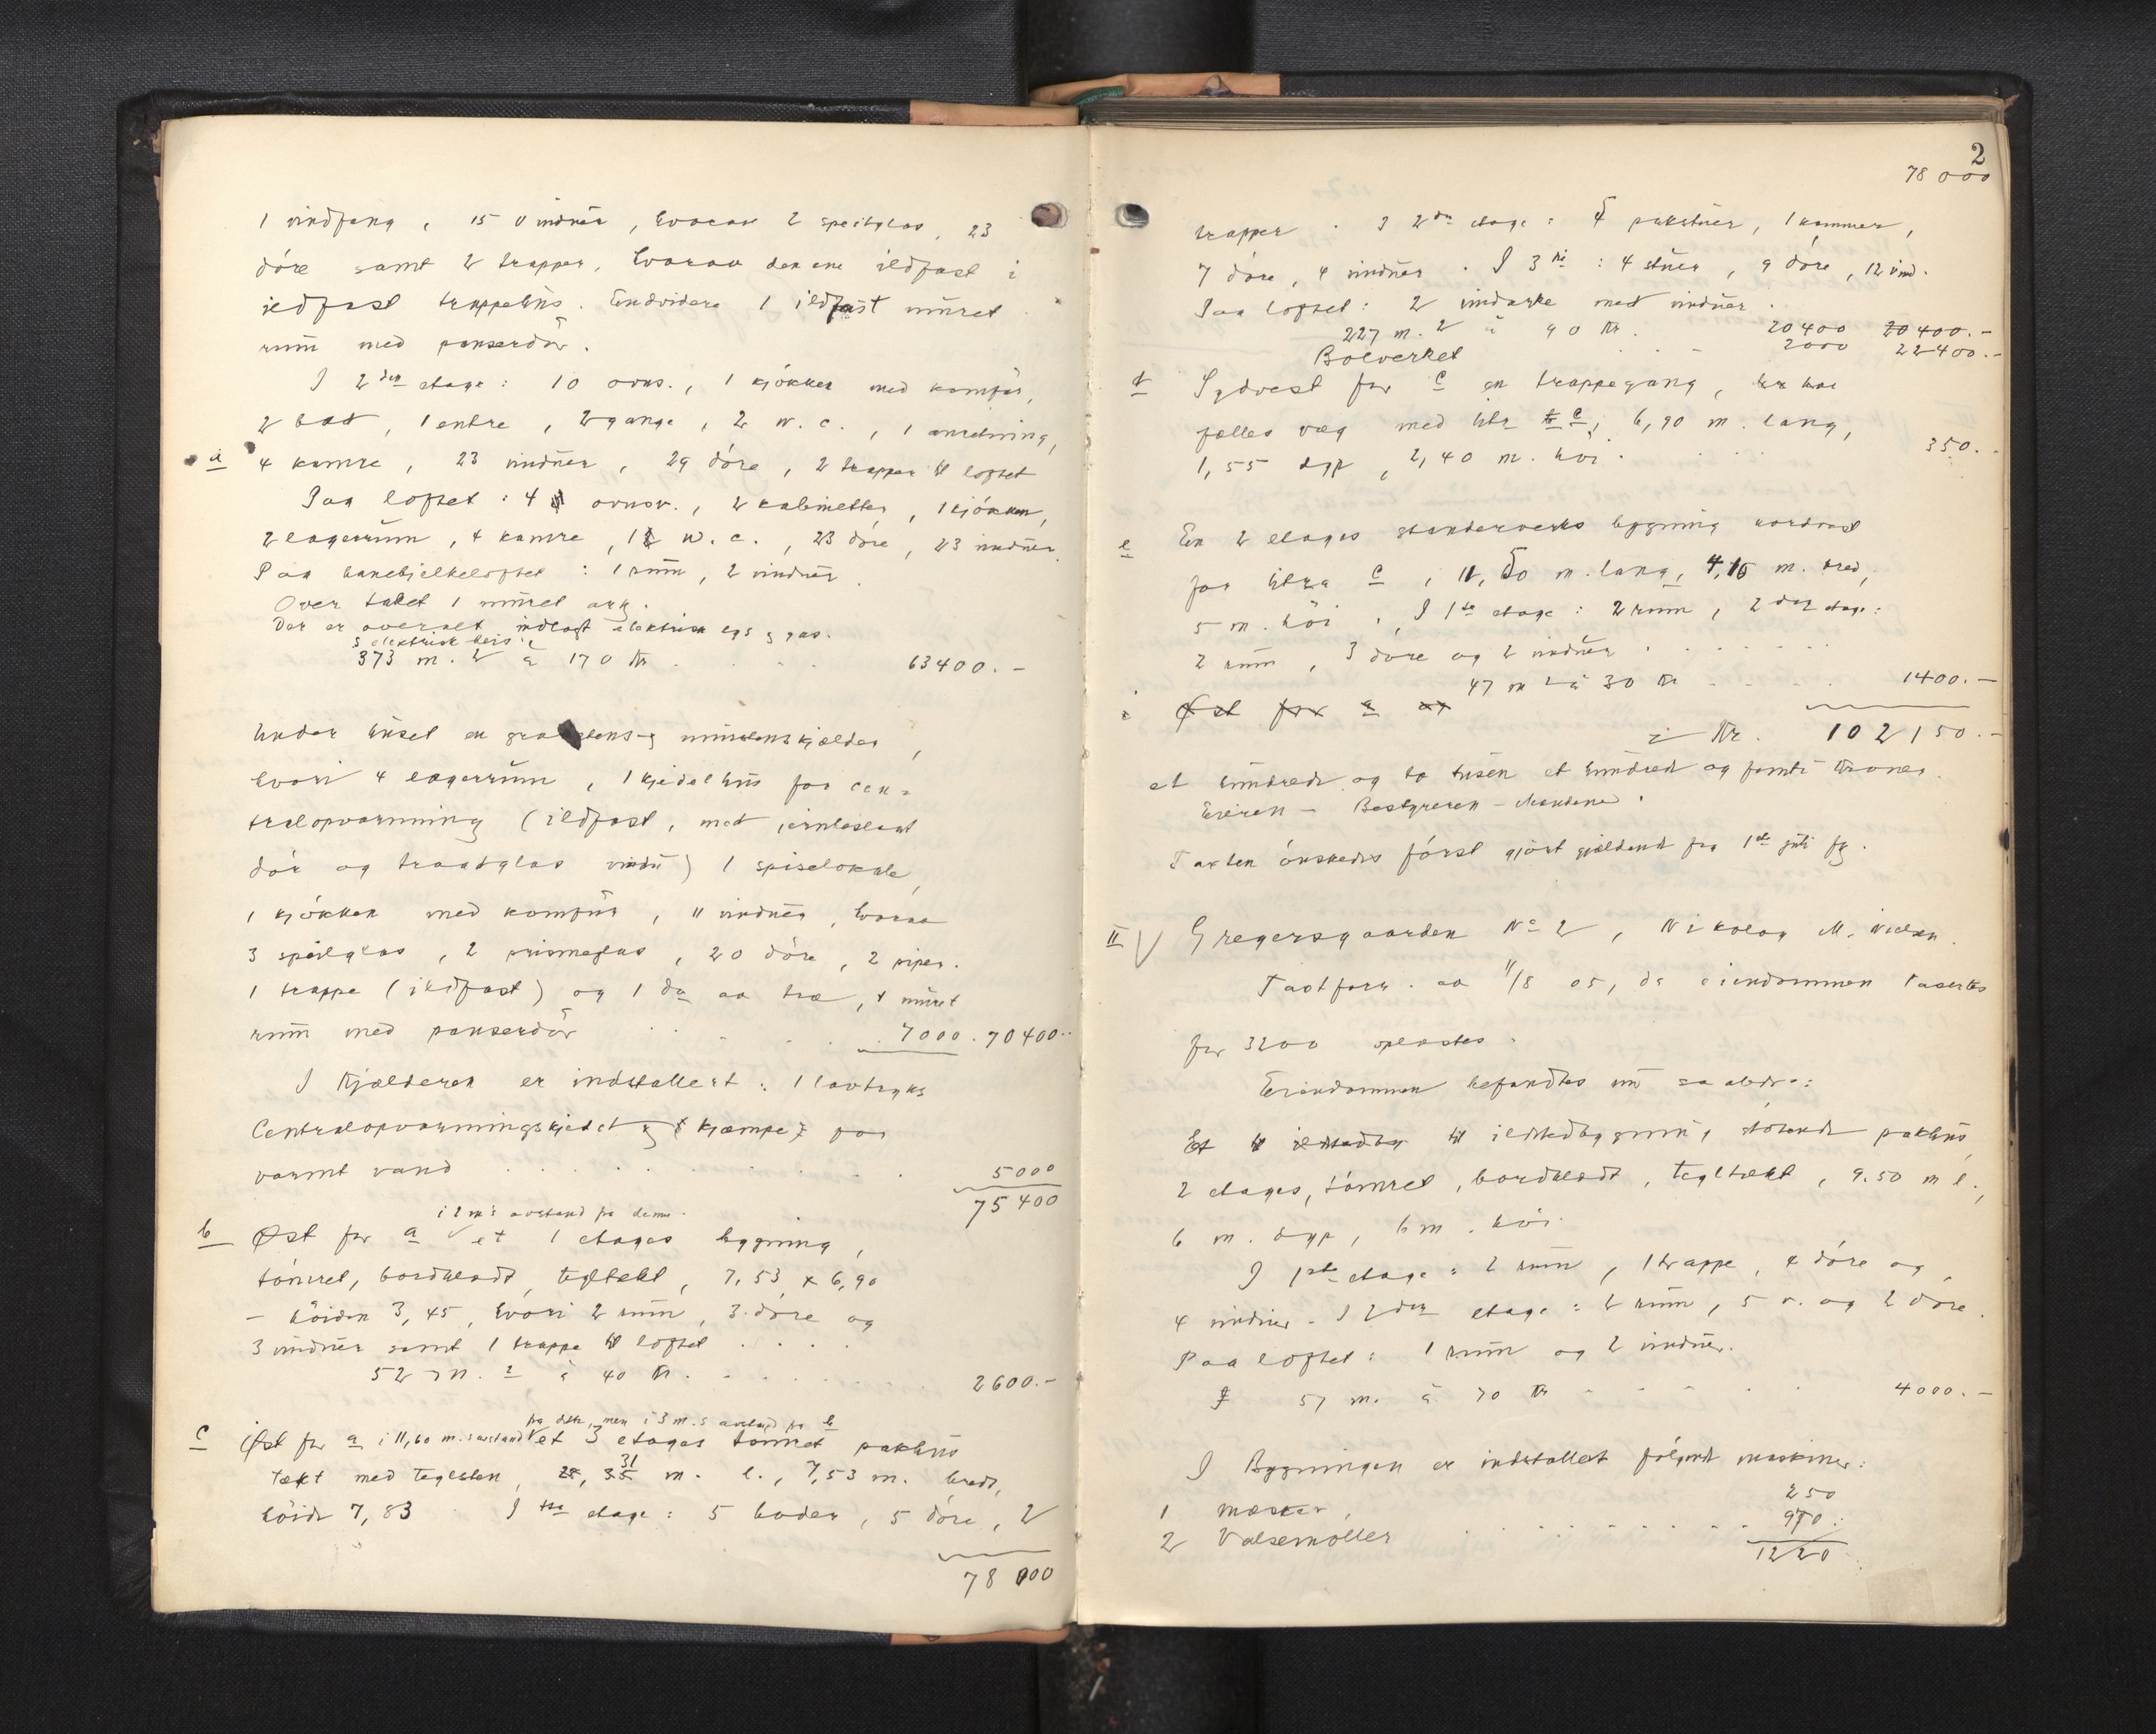 1 vindfang, 15 vinduer, hvorav 2 speilglas, 23
döre samt 2 trapper, hvorav den ene ildfast i
ildfast trappehus. Endvidere 1 ildfast muret
rum med panserdör.
I 2den etage: 10 ovns., 1 kjökken med komfur,
2 bad, 1 entre, 2 gange, 2 w.c., 1 anretning,
a 4 kamre, 23 vinduer, 29 döre, 2 trapper til loftet
Paa loftet: 4 ovnsv., 2 kabinetter, 1 kjökken,
2 lagerrum, 4 kamre, 1 w.c., 23 döre, 23 vinduer.
Paa hanebjelkeloftet: 1 rum, 2 vinduer.
Over taket 1 muret ark.
Der er overalt indlagt elektrisk lys og gas.
og elektrisk heis.
373 m.2 à 170 Kr . . . . 63400.-
Under huset en graastens- og murstenskjelder,
hvori 4 lagerrum, 1 kjedelhus for cen-
tralopvarmning (ildfast, med jernbeslaat
dör og traadglas vindu) 1 spiselokale,
1 kjökken med komfur, 11 vinduer, hvorav
3 speilglas, 2 prismeglas, 20 döre, 2 piper.
1 trappe (ildfast) og 1 do av træ, 1 muret
rum med panserdör . . . . 7000. 70400.-
I Kjælderen er indstallert: 1 lavtryks
Centralopvarmingskjedel og 1 kjempe for
varmt vand . . . . . . 5000
75400
i 2 m's avstand fra denne.
b Øst for a et 1 etages bygning,
tömret, bordklædt, tegltekt, 7,53 x 6,90
- höiden 3,45, hvori 2 rum, 3 döre og
3 vinduer samt 1 trappe til loftet . . . .
52 m.2 à 40 Kr. . . . . 2600.-
fra dette, men i 3 m.s avstand fra b
c Øst for a i 11,60 m.s avstand et 3 etages tömret pakhus
tækt med teglsten, m. l., 7,53 m. bredt,
31
höide 7,83 I 1ste etage: 5 boder, 5 döre, 2
78 000
2
78 000
trapper. I 2den etage: 5 pakstuer, 1 kammer,
7 döre, 4 vinduer. I 3die: 4 stuer, 9 döre, 12 vind.
Paa loftet: 2 vindarke med vinduer.
227 m.2 à 90 Kr. 20400 20400.-
Bolverket . . . 2000 22400.-
d Sydvest for c en trappegang, har
fælles væg med litr c, 6,90 m. lang,
1,55 dyp, 2,40 m. höi. . . . 350.-
e En 2 etages stenderverks bygning nordvest
for litra c, 11,50 m. lang, 4,15 m. bred,
5 m. höi. I 1ste etage: 2 rum, 2den etage:
2 rum, 3 döre og 2 vinduer . . . . .
47 m2 à 30 Kr . . . . 1400.-
Øst for a
Kr. 102150.-
et hundrede og to tusen et hundred og femti kroner.
Eieren - Bestyreren -
Taxten önskedes först gjört gjældende fra 1ste juli
II V Gregersgaarden No 2, Nikolay M. Nielsen.
Taxtforr. av 11/8 05, da eiendommen taxertes
for 3200 oplæstes.
Eiendommen befandtes nu saaledes:
Et til ildstedbygning stötende pakhus
2 etages, tömret, bordklædt, tegltækt, 9.50 m l.,
6 m. dyp, 6 m. höi.
I 1ste etage: 2 rum, 1 trappe, 4 döre og
4 vinduer. I 2den etage: 2 rum, 5 v. og 2 döre.
Paa loftet: 1 rum og 2 vinduer.
57 m. à 70 Kr . . . . . 4000.-
I Bygningen er indstallert fölgende maskiner:
1 mæsker, 250
2 Valsemöller . . . . . . 970.
1220